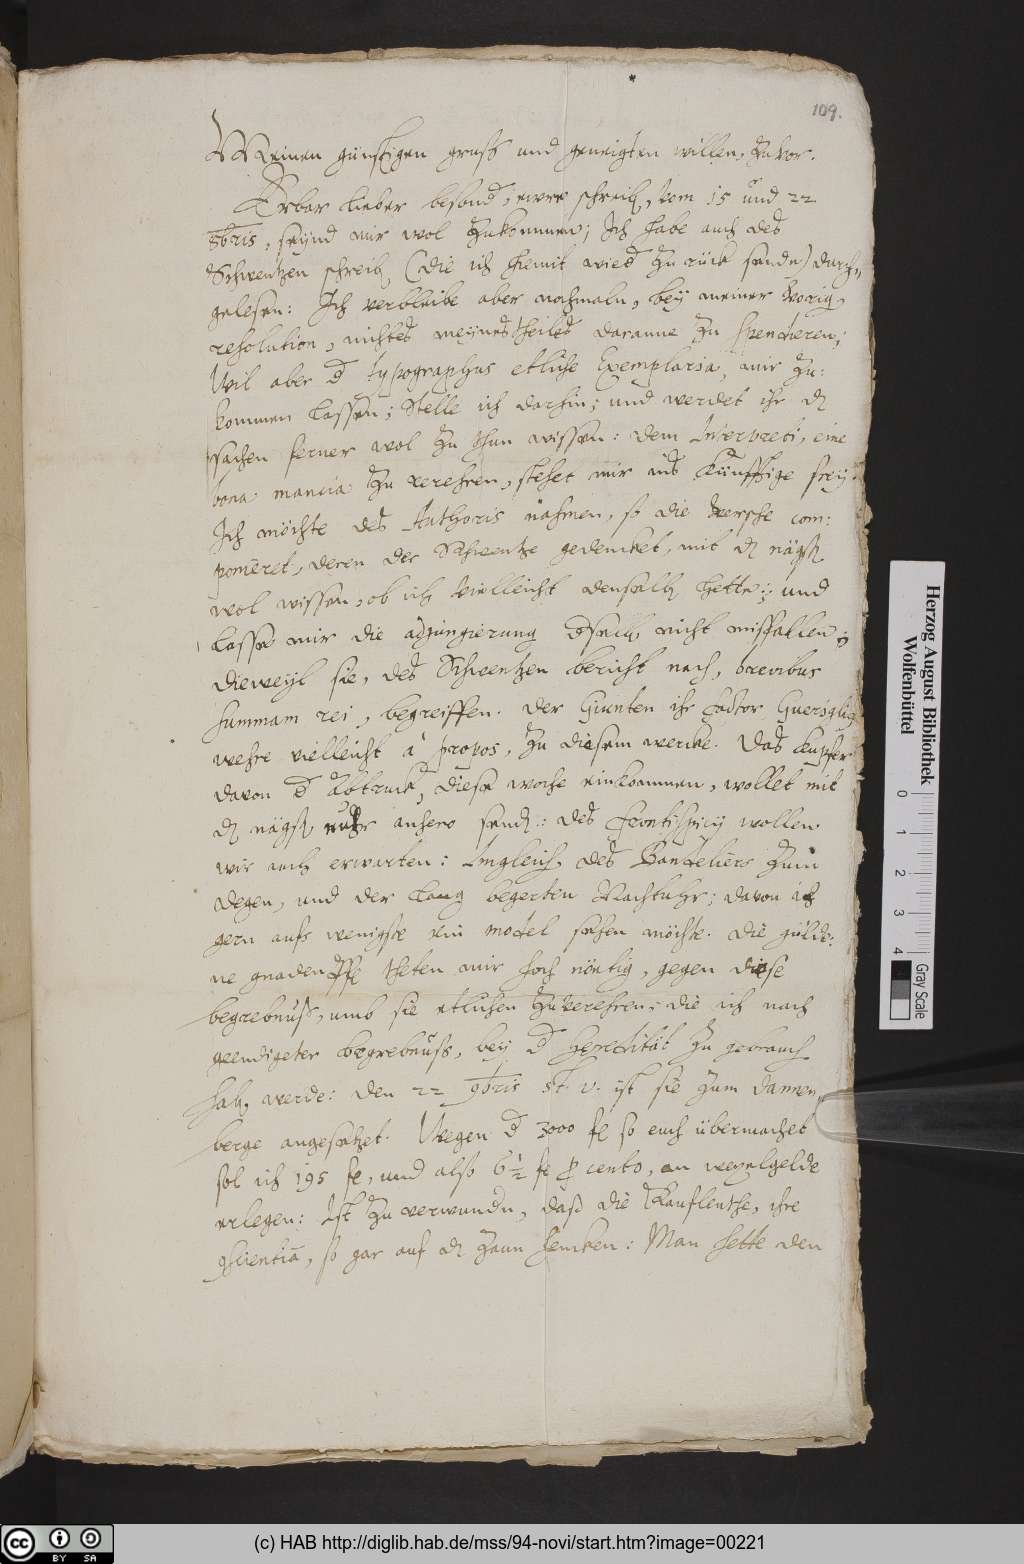 109.
Meinen günstigen gruß und geneigten willen, zuvor.
Erbar lieber besond, ewre schreib, vom 15 und 22
8bris, seynd mir wol zukommen; Ich habe auch des
Schwentzen schreib (die ich hiemit wied zu rück sende) durch-
gelesen: Ich verbleibe aber nochmaln, bey meiner vorig,
resolution, nichtes meynes theiles daranne zu spendieren;
Wil aber d typographus etliche Exemplaria, mir zu:
kommen lassen; Stelle ich darhin; und werdet ihr d
sachen ferner wol zu thun wissen: dem Interpreti, eine
bona mancia zu verehren, stehet mir ins künfftige frey.
Ich möchte des Authoris nahmen, so die Versche com:
poneret, deren der Schwentze gedencket, mit d nägst
wol wissen, ob ich vielleicht denselb hette; und
lasse mir die adjungierung dselb nicht mißfallen
dieweyl sie, des Schwentzen bericht nach, brevibus
summam rei, begreiffen. Der Giunten ihr factor
wehre vielleicht à propos, zu diesem wercke. Das kupfer
davon d Abtruck, diese woche einkommen, wollet mit
d nägst anhero send: des frontispicij wollen
wir auch erwarten: Imgleich des Bandeliers zum
degen, und der lang begerten Nachtuhr; davon ich
gern aufs wenigste ein model sehen möchte. Die gülde:
ne gnaden theten mir hoch nöetig, gegen diese
begrebnuß, umb sie etlichen zuverehren, die ich nach
geendigter begrebnuß, bey d heredität zu gebrauch
hab werde: den 22 9bris st. v. ist sie zum Dannen-
berge angesetzet. Wegen d 3000 fl so euch übermachet
sol ich 195 fl, und also 6 1/2 fl p cento, an wexelgelde
erlegen: Ist zu verwundn, daß die Kaufleuthe, ihre
so gar auf d zaun hencken: Man hette den
Herzog August Bibliothek
Wolfenbüttel
0 1 2 3 4
Gray Scale
cc BY SA
(c) HAB http://diglib.hab.de/mss/94-novi/start.htm?image=00221